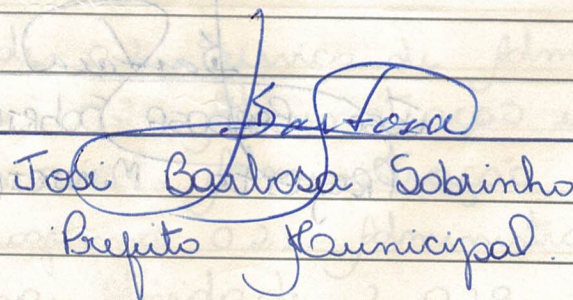 JBarbosa
José Barbosa Sobrinho
Prefeito Municipal.